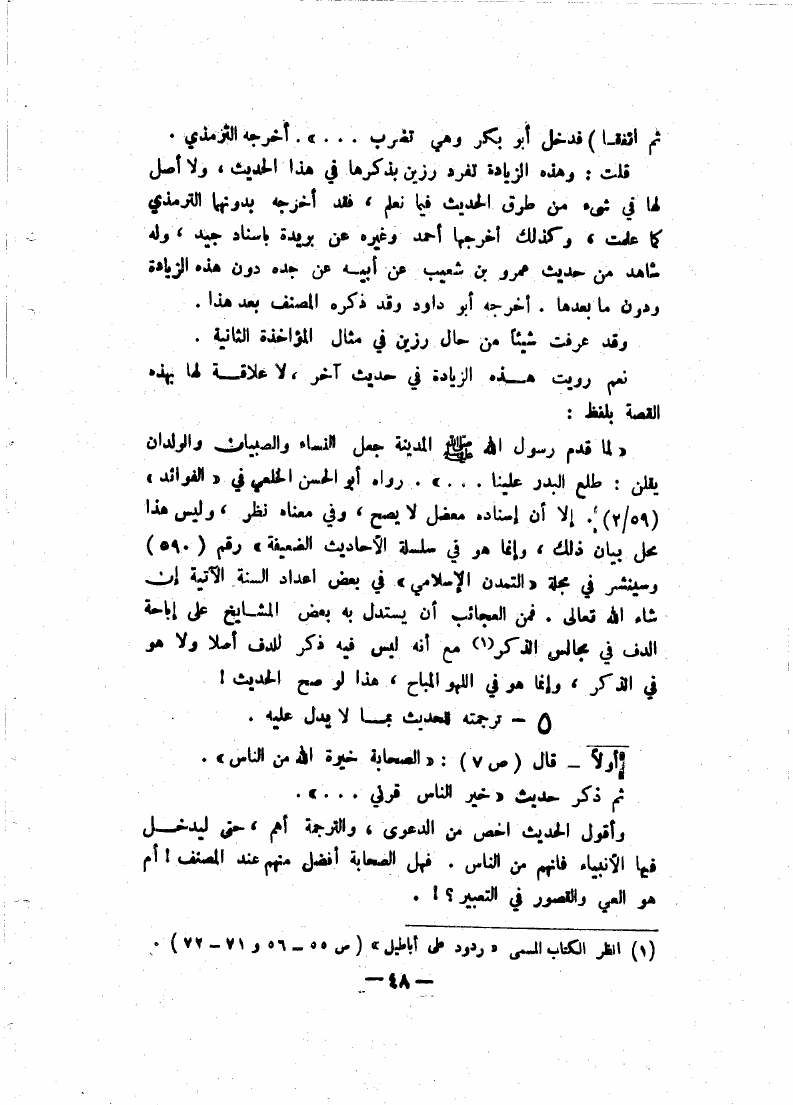 ثم اتفقـا ) فدخل أبو بكر وهي تضرب . . . » . أخرجه الترمذي .
قلت : وهذه الزيادة تفرد رزين بذكرها في هذا الحديث ، ولا أصل
لها في شيء من طرق الحديث فيما نعلم ، فقد أخرجه بدونها الترمذي
كما علمت ، وكذلك أخرجها أحمد وغيره عن بريدة باسناد جيد ، وله
شاهد من حديث عمرو بن شعيب عن أبيـه عن جده دون هذه الزيادة
ودون ما بعدها . أخرجه أبو داود وقد ذكره المصنف بعد هذا .
وقد عرفت شيئاً من حال رزين في مثال المؤاخذة الثانية .
نعم رويت هـــذه الزيادة في حديث آخر ، لا علاقـــة لها بهذه
القصة بلفظ :
« لما قدم رسول الله ﷺ المدينة جعل النساء والصبيان والولدان
يقلن : طلع البدر علينا . . . » . رواه أبو الحسن الخلعي في « الفوائد »
(٢/٥٩) . إلا أن إسناده معضل لا يصح ، وفي معناه نظر ، وليس هذا
محل بيان ذلك ، وإنما هو في سلسلة الأحاديث الضعيفة » رقم ( ٥٩٠ )
وسينشر في مجلة « التمدن الإسلامي » في بعض اعداد السنة الآتية إن
شاء الله تعالى . فمن العجائب أن يستدل به بعض المشـايخ على إباحة
الدف في مجالس الذكر(١) مع أنه ليس فيه ذكر للدف أصلا ولا هو
في الذكر ، وإنما هو في اللهو المباح ، هذا لو صح الحديث !
٥ – ترجمته للحديث بمـا لا يدل عليه .
أولاً – قال ( ص ٧ ) : « الصحابة خيرة الله من الناس » .
ثم ذكر حديث « خير الناس قرني . . . » .
وأقول الحديث اخص من الدعوى ، والترجمة أهم ، حتى ليدخــل
فيها الأنبياء فانهم من الناس . فهل الصحابة أفضل منهم عند المصنف ! أم
هو العي والقصور في التعبير ؟ ! .
(١) انظر الكتاب المسمى « ردود على أباطيل » ( ص ٥٥ – ٥٦ و ٧١ – ٧٢ ) .
– ٤٨ –